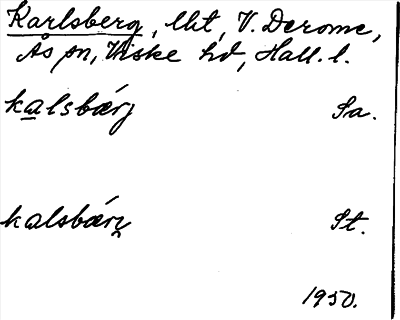 Karlsberg, lht, V. Derome,
Ås sn, Viske hd, Hall. l.
kalsbærj Sa.
kalsbærj St.
1950.